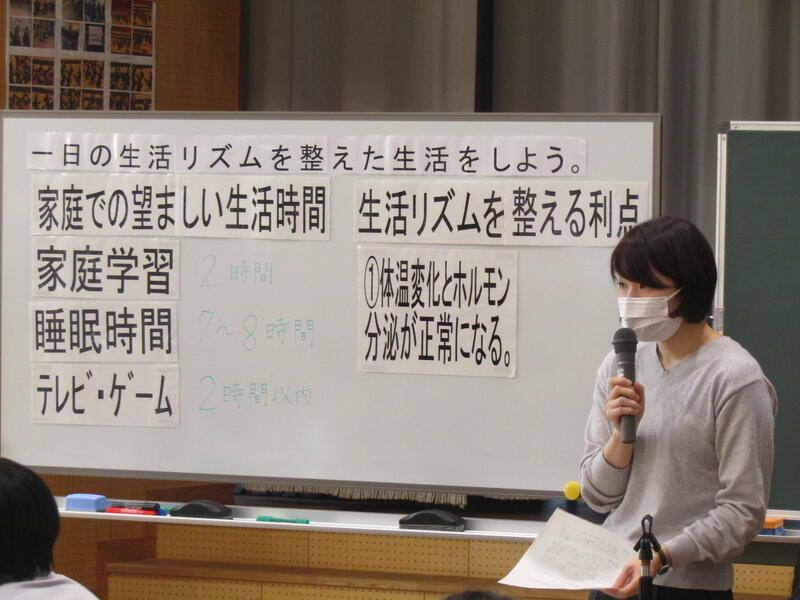 一日の生活リズムを整えた生活をしよう。
家庭での望ましい生活時間
家庭学習 2時間
睡眠時間 7～8時間
テレビ・ゲーム 2時間以内
生活リズムを整える利点
①体温変化とホルモン
分泌が正常になる。